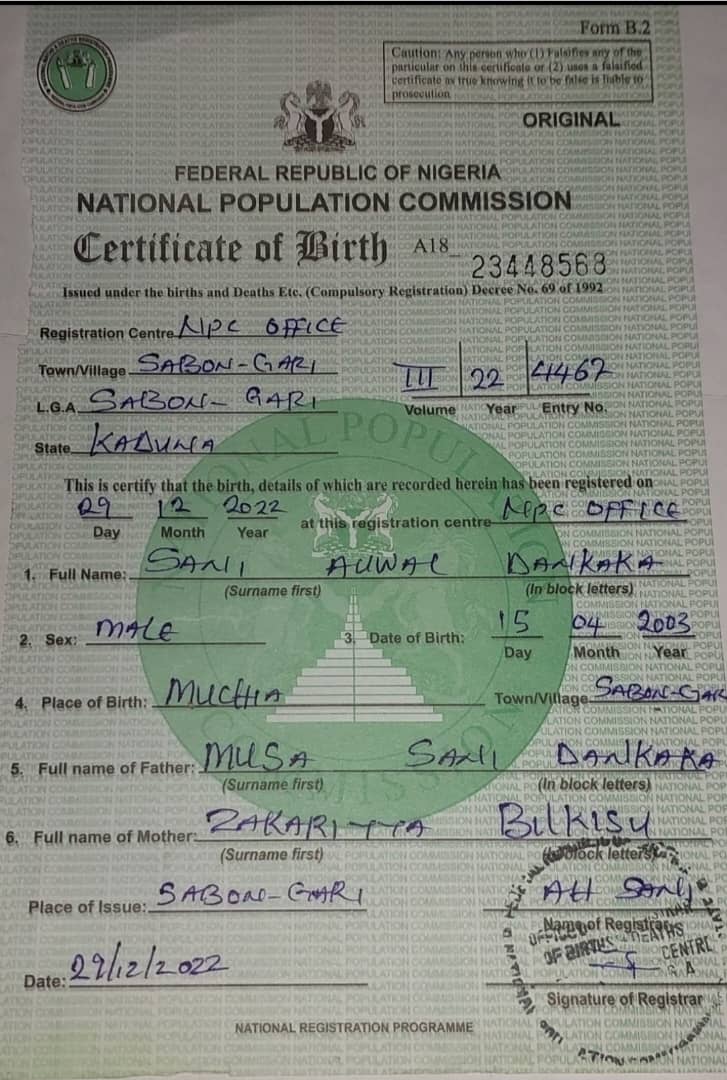 Form B.2
Caution: Any person who (1) Falsifies any of the
particular on this certificate or (2) uses a falsified
certificate as true knowing it to be false is liable to
prosecution
ORIGINAL
FEDERAL REPUBLIC OF NIGERIA
NATIONAL POPULATION COMMISSION
Certificate of Birth A18 23448568
Issued under the births and Deaths Etc. (Compulsory Registration) Decree No. 69 of 1992
Registration Centre NPC OFFICE
Town/Village SABON-GARI
L.G.A. SABON-GARI
III 22 4467
Volume Year Entry No.
State KADUNA
This is certify that the birth, details of which are recorded herein has been registered on
29 12 2022 at this registration centre NPC OFFICE
Day Month Year
1. Full Name: SANI AUWAL DANKAKA
(Surname first) (In block letters)
2. Sex: MALE 3. Date of Birth: 15 04 2003
Day Month Year
4. Place of Birth: MUCHIA Town/Village SABON-GAR
5. Full name of Father: MUSA SANI DANKAKA
(Surname first) (In block letters)
6. Full name of Mother: ZAKARIYYA BILKISU
(Surname first) block letters
Place of Issue: SABON-GARI
Name of Registrar
OF BIRTHS DEATHS
CENTRE
Date: 29/12/2022
Signature of Registrar
NATIONAL REGISTRATION PROGRAMME